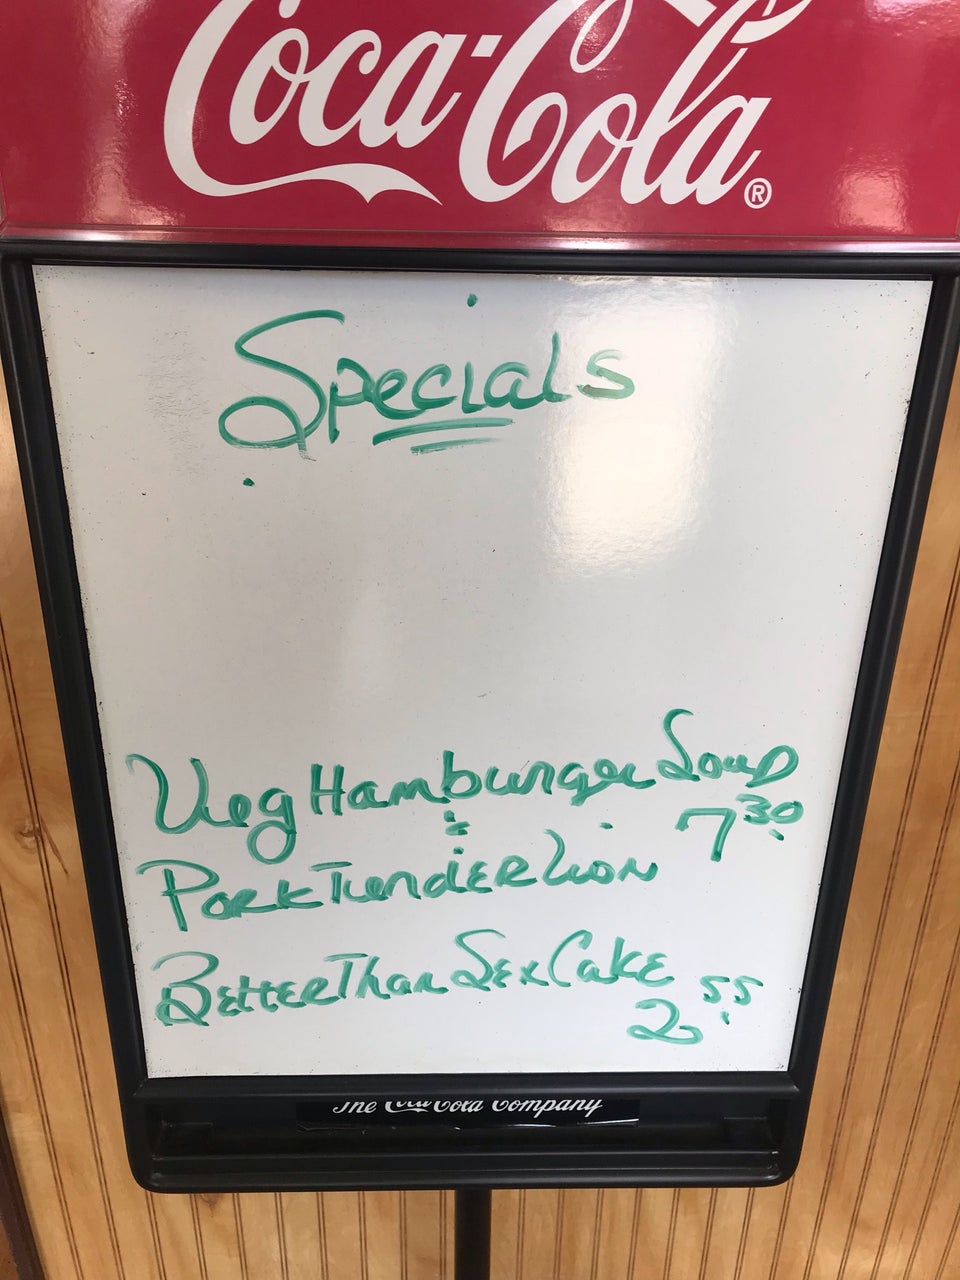 Coca-Cola®
Specials
Veg Hamburger Soup
7 30
Pork Tenderlion
Better Than Sex Cake
2 55
The Coca-Cola Company